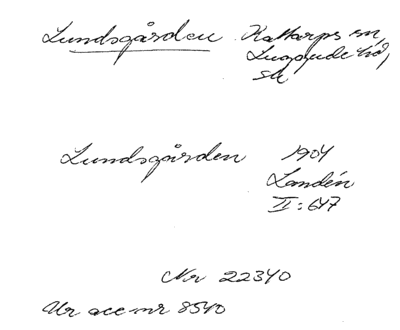 Lundsgården Kattarps sn,
Luggude hd,
Sk
Lundsgården 1904
Landén
II:647
Nr 22340
Ur acc nr 8540